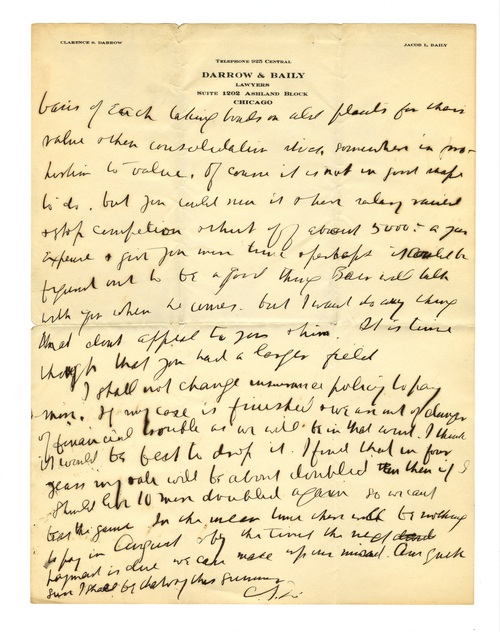 CLARENCE S. DARROW
JACOB L. BAILY
TELEPHONE 925 CENTRAL
DARROW & BAILY
LAWYERS
SUITE 1202 ASHLAND BLOCK
CHICAGO
basis of Each taking bonds on old plants for their
value then consolidation stock somewhere in pro-
portion to value. Of course it is not in good shape
to do. but you could run it & have salary raised
& stop competion & shut off about 5000.- a year
expense & give you more time & perhaps it could be
figured out to be a good thing Baer will talk
with you when he comes. but I want do any thing
that dont appeal to you & him. It is time
though that you had a larger field
I shall not change insurance policy to pay
more. If my case is finished & we are out of danger
of financial trouble as we will be in that event. I think
it would be best to drop it. I find that in four
years my rate will be about doubled & then if I
should live 10 more doubled again so we cant
beat the game In the mean time there will be nothing
to pay in August & by the time the next
payment is due we can make up our mind. Am quite
sure I shall be that way this summer